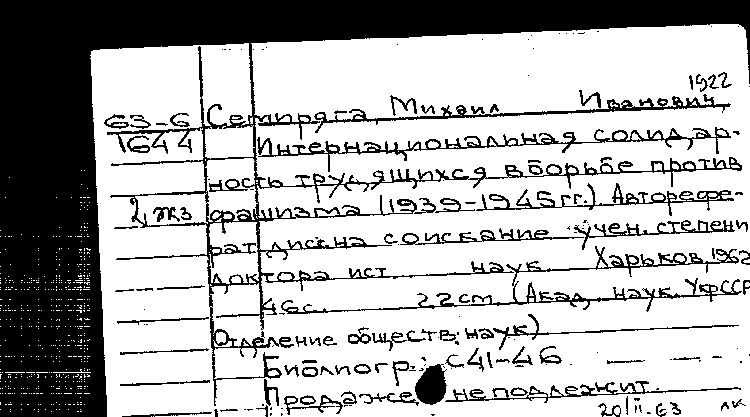 1922
63-6 Семиряга, Михаил Иванович,
1644 Интернациональная солидар-
ность трудящихся в борьбе против
2 экз фашизма (1939-1945 гг.) Авторефе-
рат дисс. на соискание учен. степени
доктора ист. наук. Харьков, 1962
46 с. 22 см. (Акад. наук УкрССР
Отделение обществ. наук)
Библиогр.: с 41-46
Продаже не подлежит.
20/II-63 лк